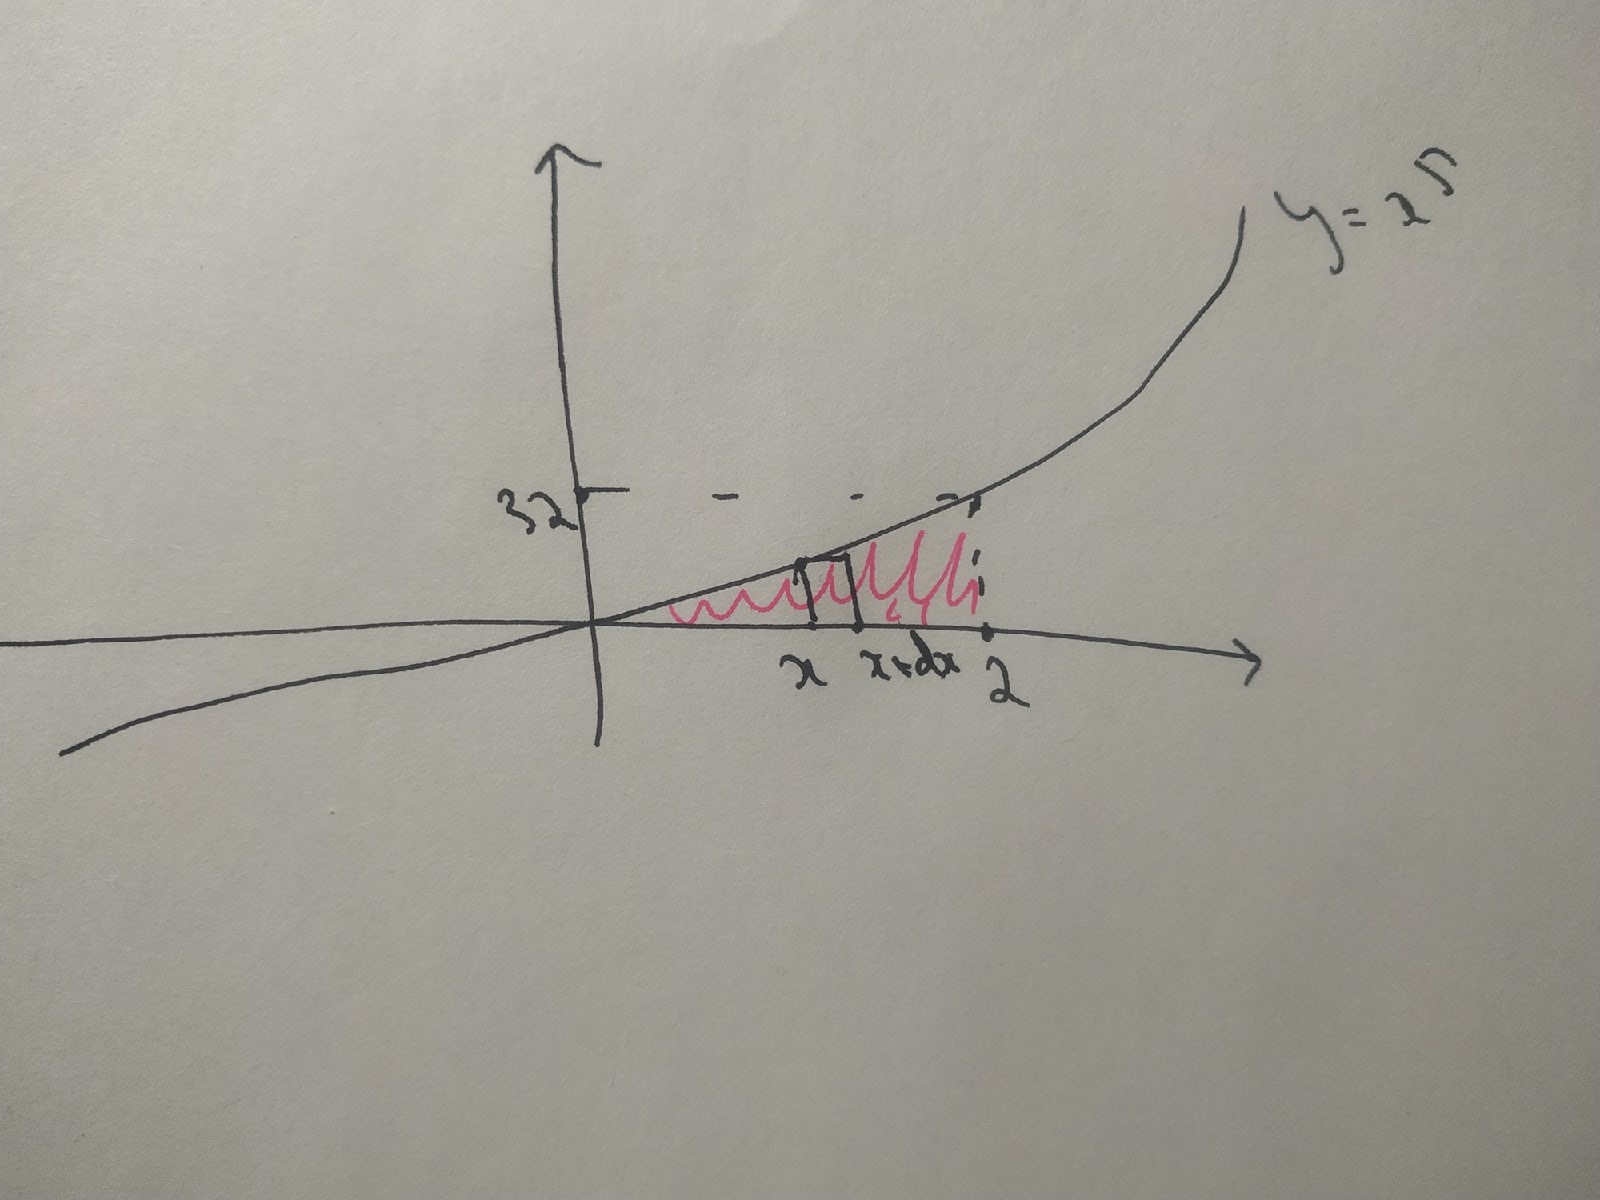 y = x⁵
32
x x+dx 2